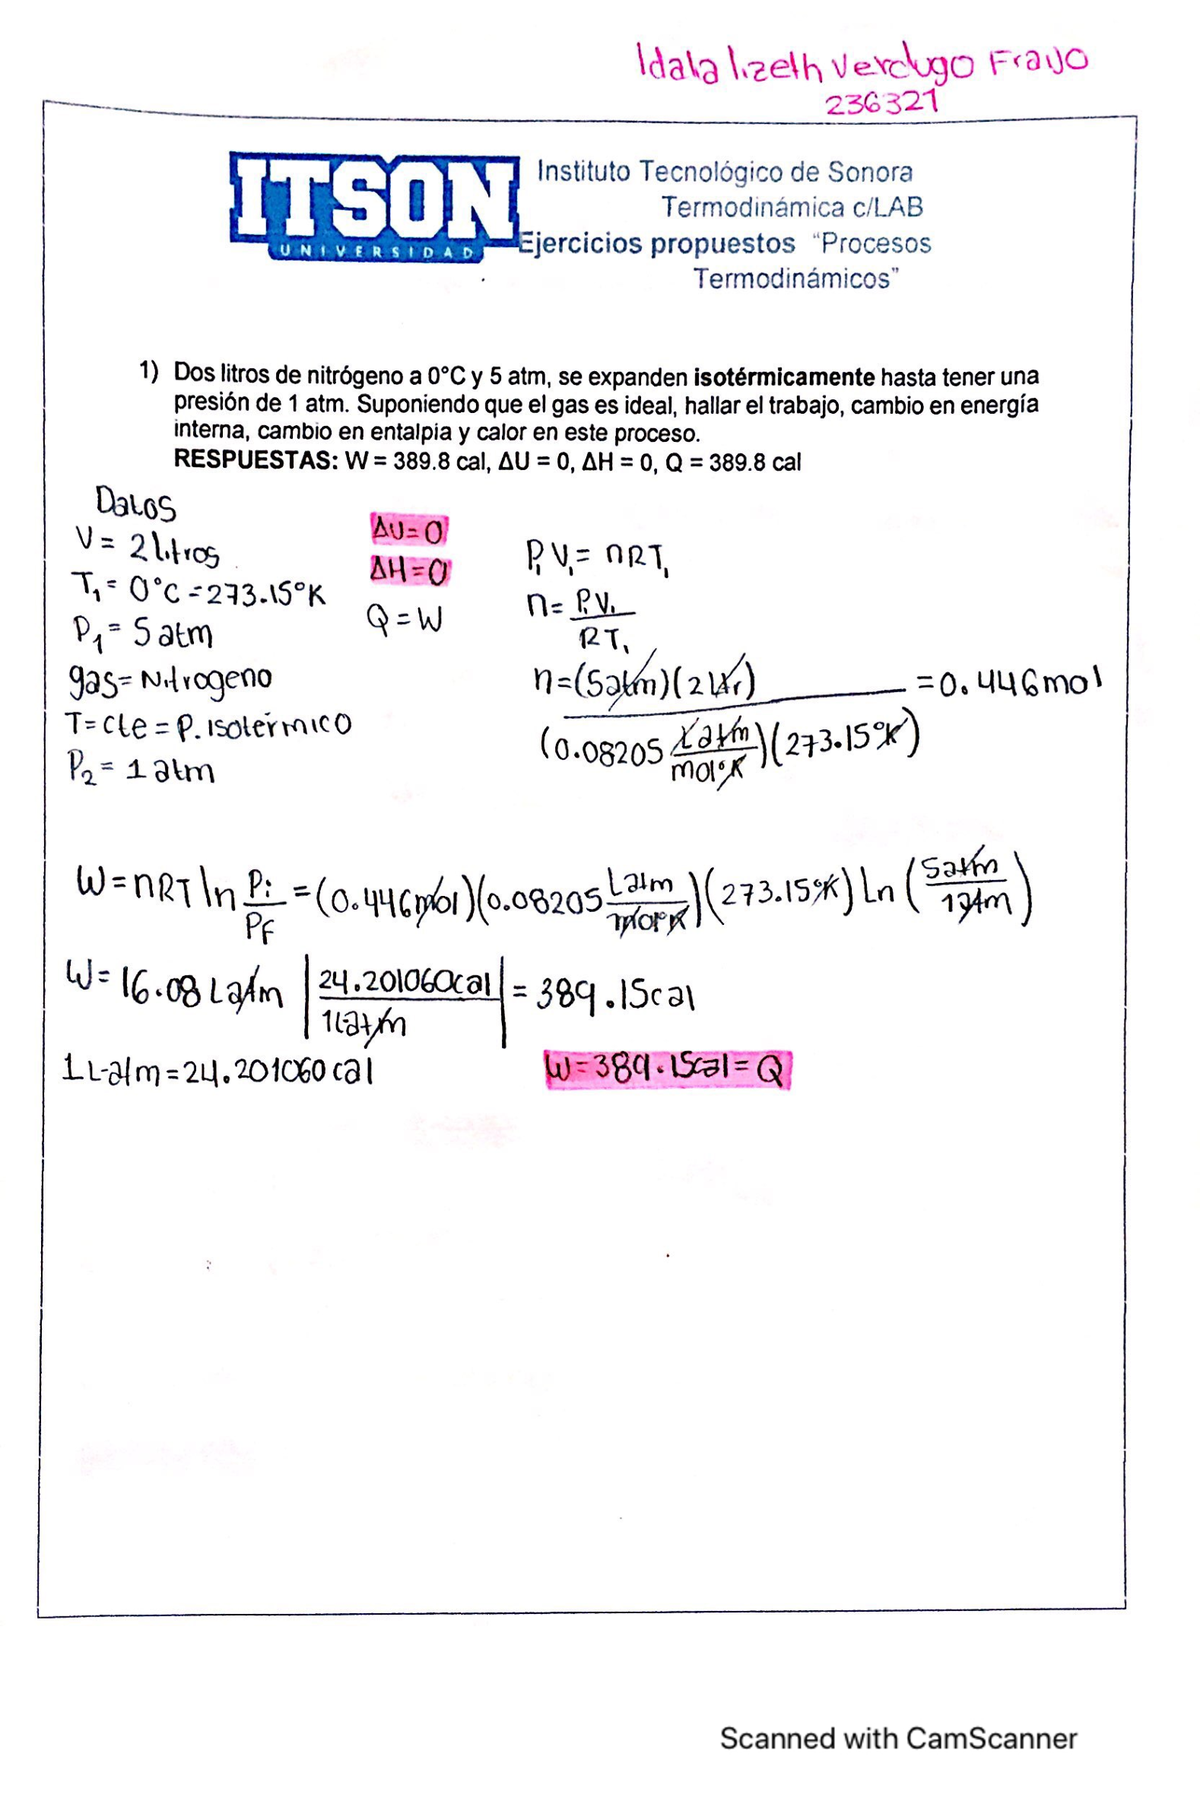 Idalia lizeth Verdugo Frayo
236321
ITSON
UNIVERSIDAD
Instituto Tecnológico de Sonora
Termodinámica c/LAB
Ejercicios propuestos "Procesos
Termodinámicos"
1) Dos litros de nitrógeno a 0°C y 5 atm, se expanden isotérmicamente hasta tener una
presión de 1 atm. Suponiendo que el gas es ideal, hallar el trabajo, cambio en energía
interna, cambio en entalpia y calor en este proceso.
RESPUESTAS: W = 389.8 cal, ΔU = 0, ΔH = 0, Q = 389.8 cal
Datos
V = 2 litros
T₁ = 0°C = 273.15°K
P₁ = 5 atm
gas = Nitrogeno
T = cte = P. isotérmico
P₂ = 1 atm
ΔU = 0
ΔH = 0
Q = W
P₁V₁ = nRT₁
n = P₁V₁
RT₁
n = (5atm)(2 Ltr) = 0.446 mol
(0.08205 Latm/mol°K)(273.15°K)
W = nRT ln Pi/PF = (0.446mol)(0.08205 Latm/mol°K)(273.15°K) Ln (5atm/1atm)
W = 16.08 Latm | 24.201060cal/1Latm | = 389.15cal
1 L-atm = 24.201060 cal
W = 389.15cal = Q
Scanned with CamScanner